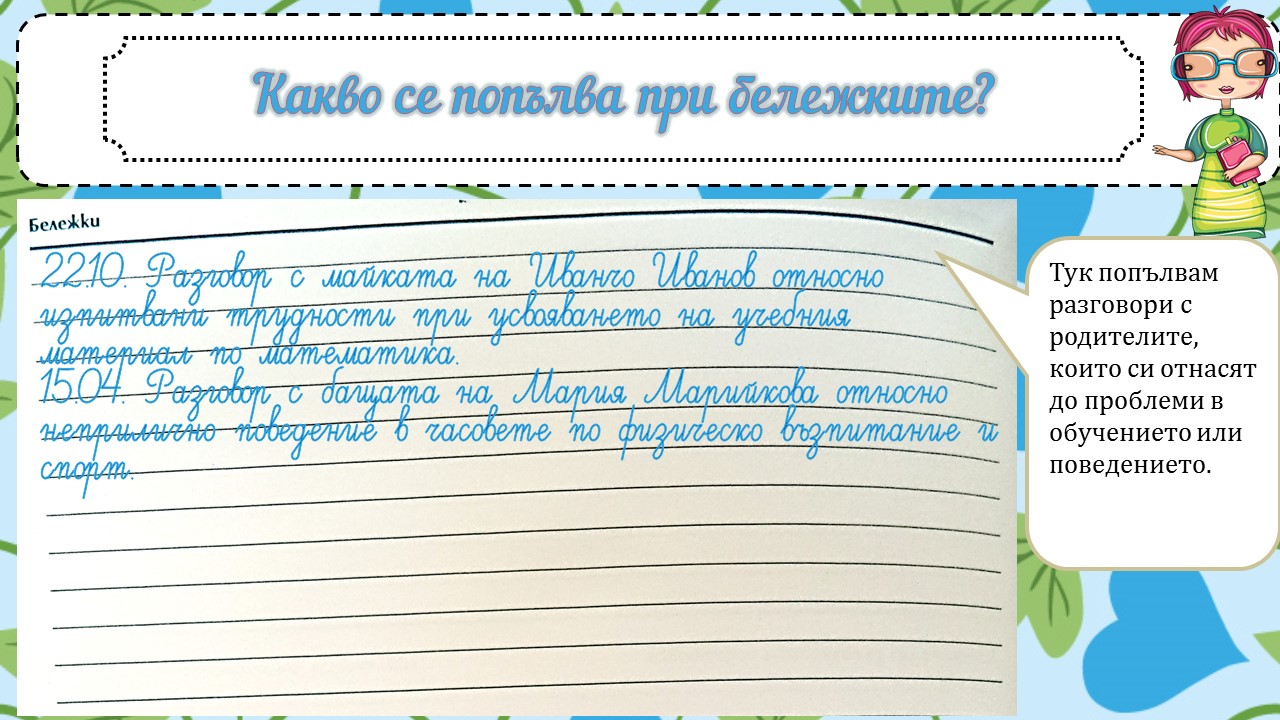 Какво се попълва при бележките?
Бележки
22.10. Разговор с майката на Иванчо Иванов относно
изпитвани трудности при усвояването на учебния
материал по математика.
15.04. Разговор с бащата на Мария Марийкова относно
неприлично поведение в часовете по физическо възпитание и
спорт.
Тук попълвам
разговори с
родителите,
които си отнасят
до проблеми в
обучението или
поведението.